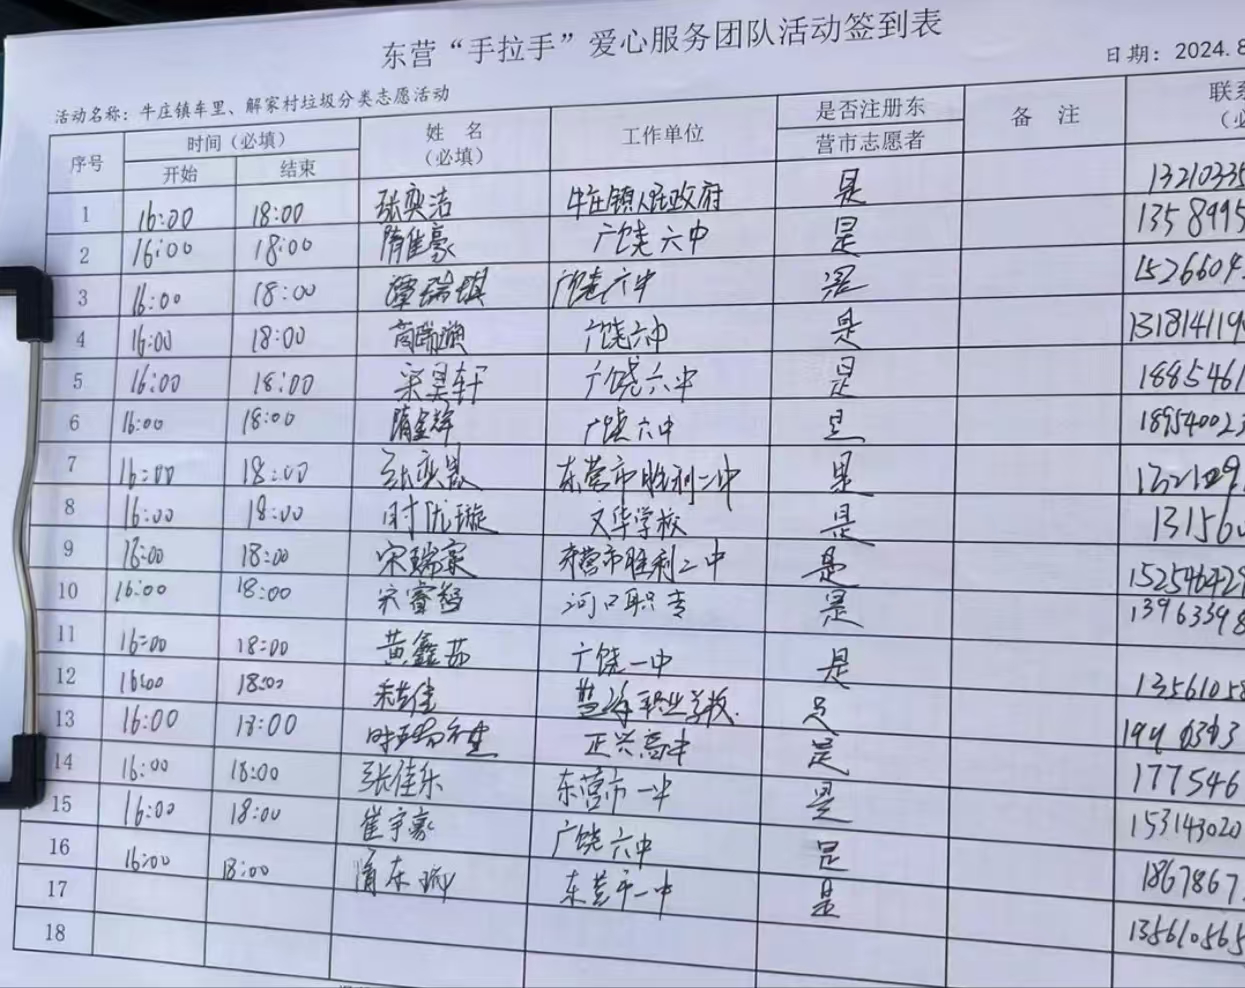 东营“手拉手”爱心服务团队活动签到表
日期：2024.8
活动名称：牛庄镇车里、解家村垃圾分类志愿活动
序号 时间（必填） 姓 名 工作单位 是否注册东 备 注 联系
开始 结束 （必填） 营市志愿者 （必
1 16:00 18:00 张奕洁 牛庄镇人民政府 是 1321033
2 16:00 18:00 隋佳豪 广饶六中 是 1358995
3 16:00 18:00 谭瑞琪 广饶六中 是 1526604
4 16:00 18:00 商瑞璇 广饶六中 是 131814119
5 16:00 18:00 宋昊轩 广饶六中 是 1885461
6 16:00 18:00 隋金辉 广饶六中 是 189540023
7 16:00 18:00 张奕晨 东营市胜利二中 是 132109
8 16:00 18:00 时优璇 文华学校 是 13156
9 16:00 18:00 宋瑞豪 东营市胜利二中 是 152546429
10 16:00 18:00 宋睿智 河口职专 是 13963398
11 16:00 18:00 黄鑫茹 广饶一中 是 13561058
12 16:00 18:00 职业学校 是
13 16:00 18:00 正兴高中 是 177546
14 16:00 18:00 张佳乐 东营市一中 是 153143020
15 16:00 18:00 崔宇豪 广饶六中 是 1867867
16 16:00 18:00 东营市一中 是 135610565
17
18